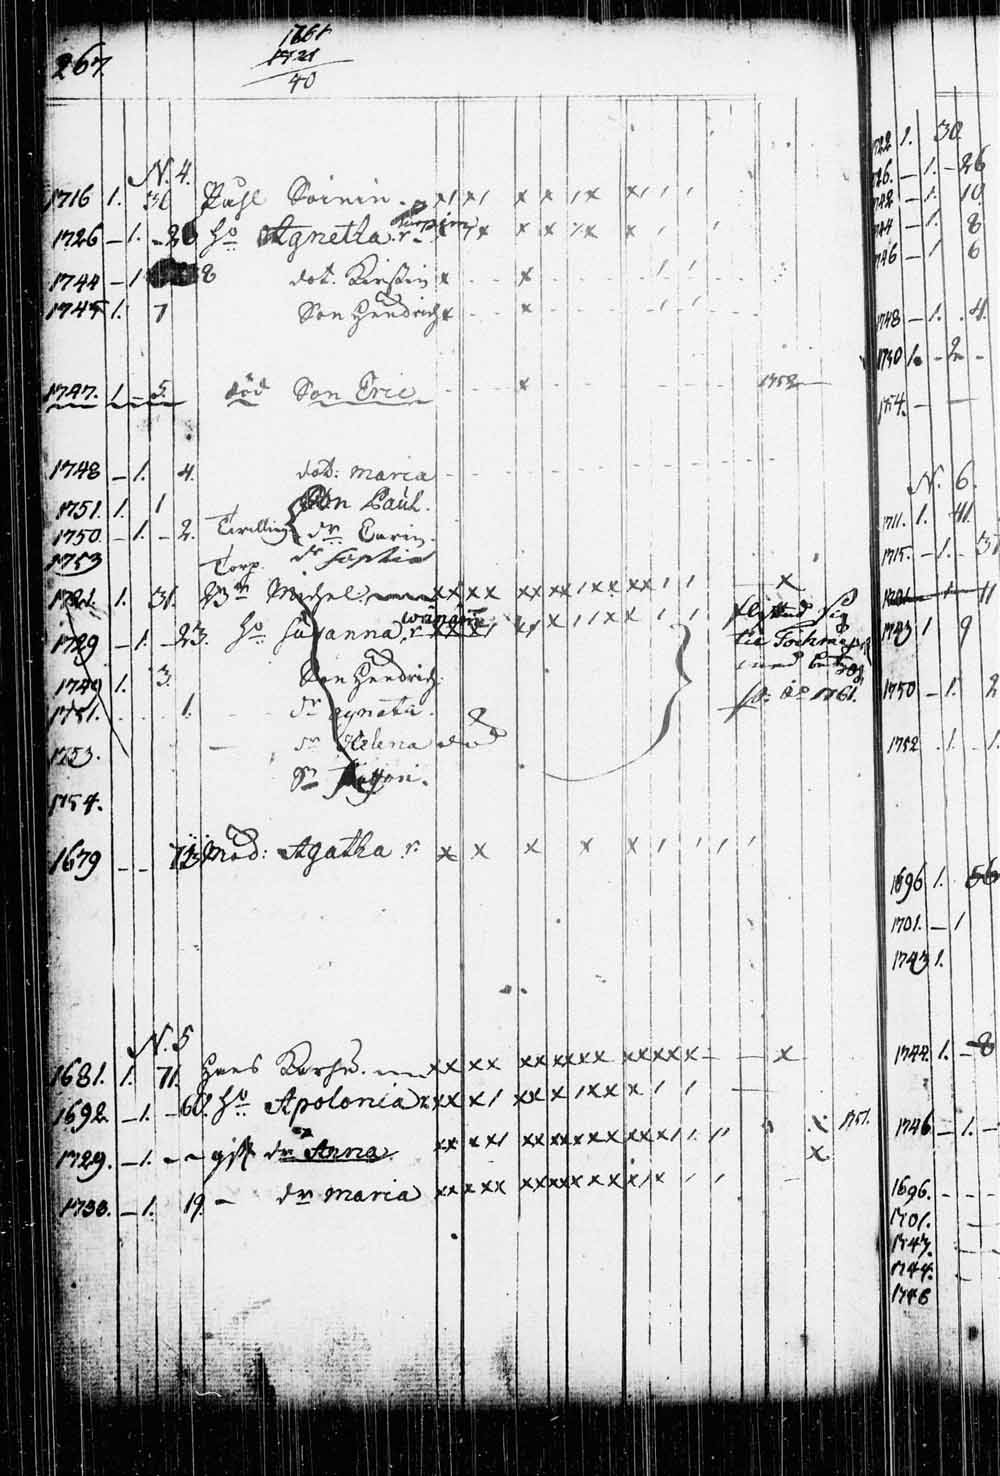 267.
1761
1721
40
N. 4.
1716 1. 36 Påhl Soinin.
1726 – 1. – 26 Ho Agnetha r.
1744 – 1 8 dot. Kirstin
1745 1. 7 Son Hendrich
1747. 1 – 5. död Son Eric 1752
1748 – 1. 4. dot: Maria
1751. 1. 1 Son Paul.
1750. – 1. – 2. Twilling dr Carin.
1753 dr Sophia
Torp.
1721. 1. 31. Br Michel
1729 – 1. – 23. Ho Susanna r.
til Tochmajer
åo 1761.
1749 1. 3. Son Hendrich.
1751. 1. dr Agneta.
1753. dr Helena död
1754. Sn
1679 – – 73 Mod: Agatha r.
N. 5
1681. 1. 71. Hans
1692 – 1. – 60. Ho Apolonia 1757.
1729. – 1. – – gift dr Anna.
1730. – 1. 19. – dr Maria
1722 1. 30.
1726. – 1. – 26
1742 – 1. 10.
1744 – 1. 8
1746 – 1 6
1748 – 1. 4.
1750 1. – 2 –
1754. –
N. 6.
1711. 1. 41.
1715. – 1. – 37
1701 1 11
1743 1 9
1750 – 1. 2
1752 . 1. – 1.
1696 1. 56
1701. – 1
1743 1.
1744. 1. – 8
1746 – 1. –
1696.
1701.
1743.
1744.
1746